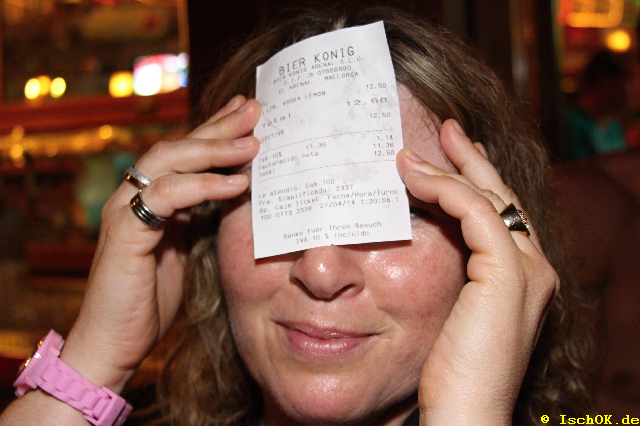 BIER KONIG
BIER KONIG ARENAL C.L.U.
EL ARENAL MALLORCA
VODKA LEMON 12,50
Total 12,50
12,50
IVA 10% 11,36 1,14
Facturación neta 11,36
Total 12,50
Le atendio: Cam 100
Fra. Simplificada: 2337
Op. Caja Ticket Fecha/Hora/Turno
100 0113 2338 27/04/14 1:20:56 1
Danke fuer Ihren Besuch
IVA 10 % Incluido
© IschOK.de